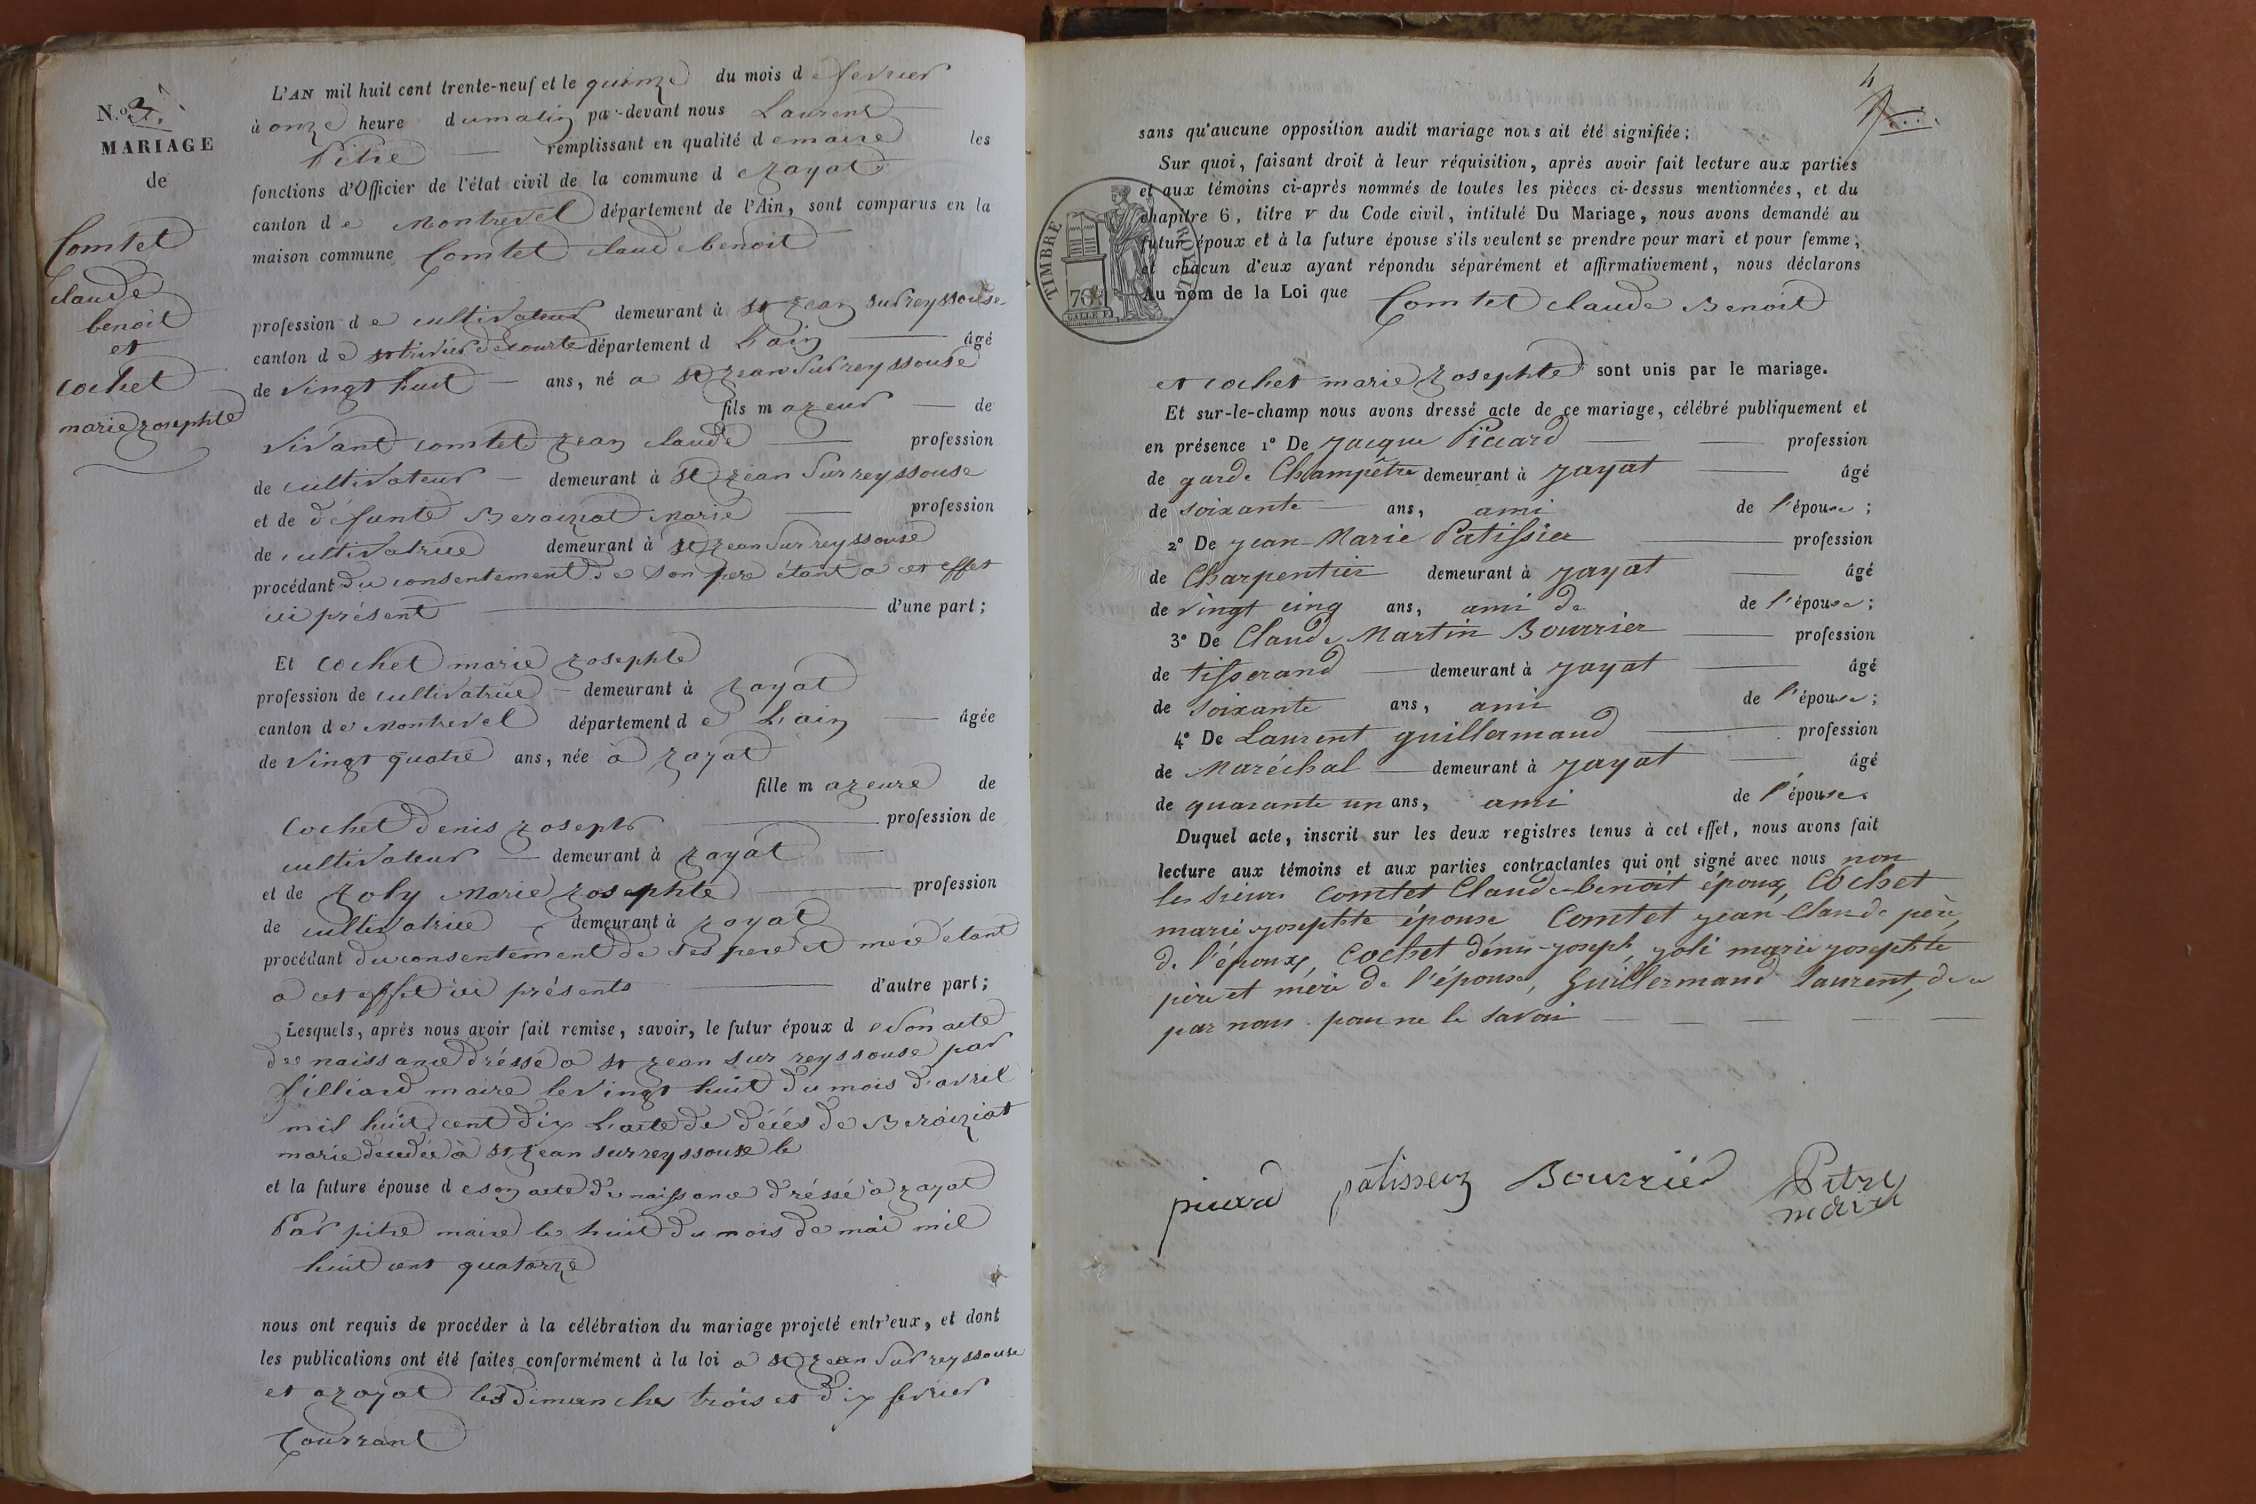 N.º 3.
MARIAGE
de
Comtet
claude
benoit
et
cochet
marie josephte
L'AN mil huit cent trente-neuf et le quinze du mois de fevrier
à onze heure du matin par-devant nous Laurent
Pitre remplissant en qualité de maire les
fonctions d'Officier de l'état civil de la commune d jayat
canton de Montrevel département de l'Ain, sont comparus en la
maison commune Comtet claude benoit
profession de cultivateur demeurant à st jean sur reyssouse
canton de st trivier de courte département d L'ain âgé
de vingt huit ans, né a st jean sur reyssouse
fils majeur de
vivant comtet jean claude profession
de cultivateur demeurant à st jean sur reyssouse
et de défunte Beroiziat Marie profession
de cultivatrice demeurant à st jean sur reyssouse
procédant du consentement de son pere étant a cet effet
ici présent d'une part;
Et cochet marie josephte
profession de cultivatrice demeurant à jayat
canton de Montrevel département de L'ain âgée
de vingt quatre ans, née à jayat
fille majeure de
Cochet denis joseph profession de
cultivateur demeurant à jayat
et de joly Marie josephte profession
de cultivatrice demeurant à jayat
procédant du consentement de ses pere et mere étant
a cet effet ici présents d'autre part;
Lesquels, après nous avoir fait remise, savoir, le futur époux de son acte
de naissance dréssé a st jean sur reyssouse par
filliard maire le vingt huit du mois d'avril
mil huit cent dix L'acte de décés de Beroiziat
marie decedée à st jean sur reyssouse le
et la future épouse de son acte de naissance dréssé à jayat
Par pitre maire le huit du mois de mai mil
huit cent quatorze
nous ont requis de procéder à la célébration du mariage projeté entr'eux, et dont
les publications ont été faites conformément à la loi a st jean sur reyssouse
et a jayat les dimanches trois et dix fevrier
Courrant
4
sans qu'aucune opposition audit mariage nous ait été signifiée;
Sur quoi, faisant droit à leur réquisition, après avoir fait lecture aux parties
et aux témoins ci-après nommés de toutes les pièces ci-dessus mentionnées, et du
chapitre 6, titre V du Code civil, intitulé Du Mariage, nous avons demandé au
futur époux et à la future épouse s'ils veulent se prendre pour mari et pour femme;
et chacun d'eux ayant répondu séparément et affirmativement, nous déclarons
Au nom de la Loi que Comtet claude Benoit
TIMBRE ROYAL
70
et cochet marie josephte sont unis par le mariage.
Et sur-le-champ nous avons dressé acte de ce mariage, célébré publiquement et
en présence 1º De jacque Piccard profession
de garde Champêtre demeurant à jayat âgé
de soixante ans, ami de l'épouse;
2º De jean-Marie Patissier profession
de Charpentier demeurant à jayat âgé
de vingt cinq ans, ami de de l'épouse;
3º De Claude Martin Bourrier profession
de tisserand demeurant à jayat âgé
de soixante ans, ami de l'épouse;
4º De Laurent guillermaud profession
de Maréchal demeurant à jayat âgé
de quarante un ans, ami de l'épouse.
Duquel acte, inscrit sur les deux registres tenus à cet effet, nous avons fait
lecture aux témoins et aux parties contractantes qui ont signé avec nous non
les sieurs Comtet Claude-benoit époux, Cochet
marie-josephte épouse Comtet jean Claude père,
de l'époux, Cochet dénis-joseph, joli marie josephte
père et mère de l'épouse, Guillermaud laurent,
par nous pour ne le savoir
picard patissier Bourrier Pitre
maire